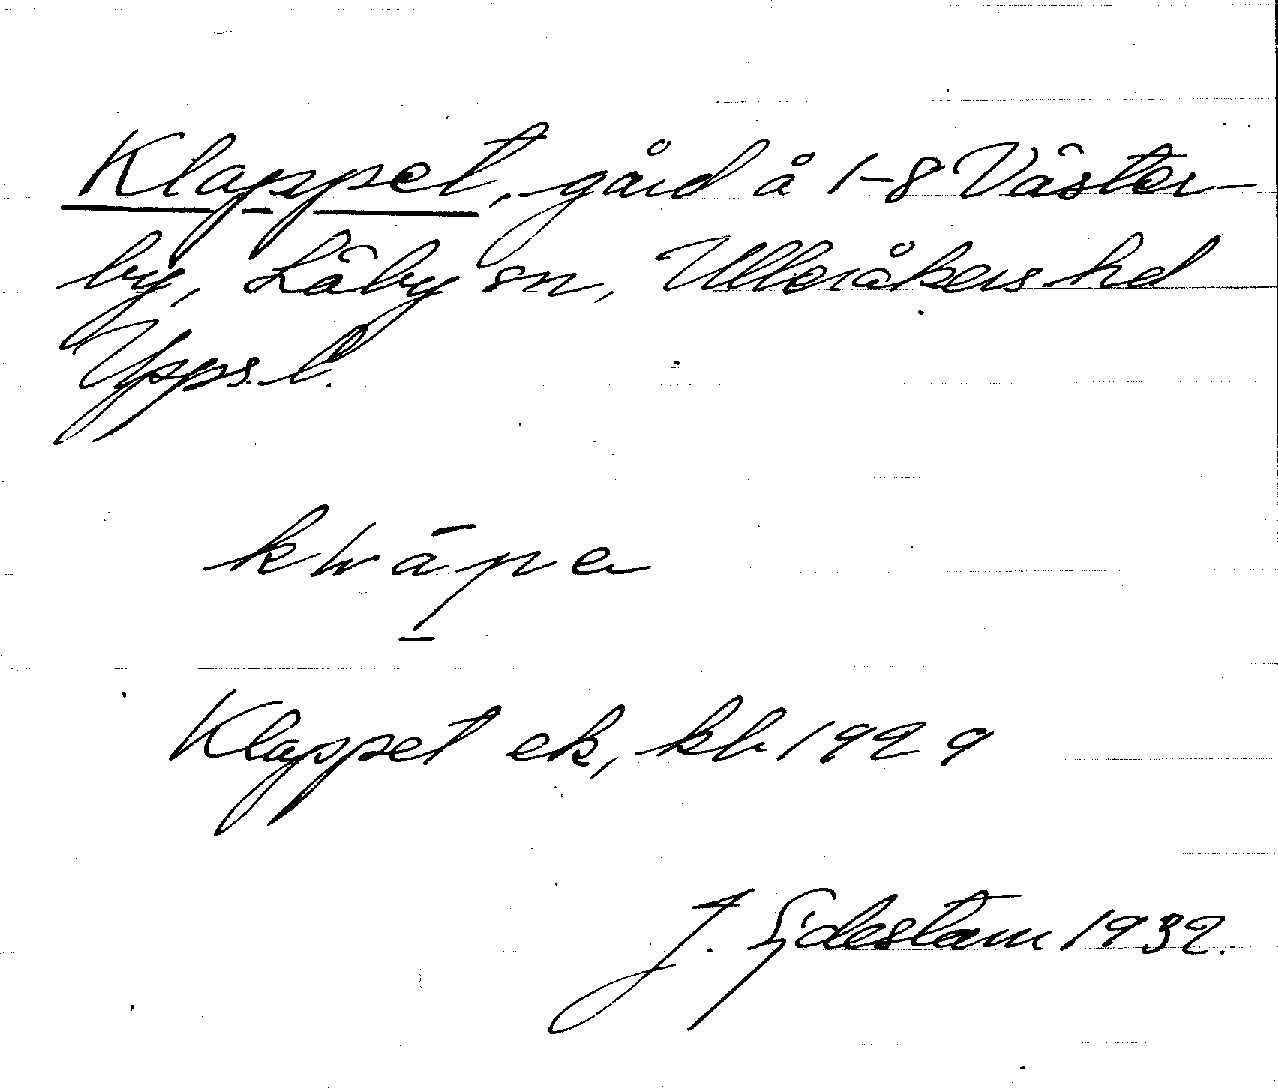 Klappet, gård å 1-8 Väster-
by, Läby sn, Ulleråkers hd
Upps. l.
Klappet ek, kb 1929
J. Sjdestam 1932.